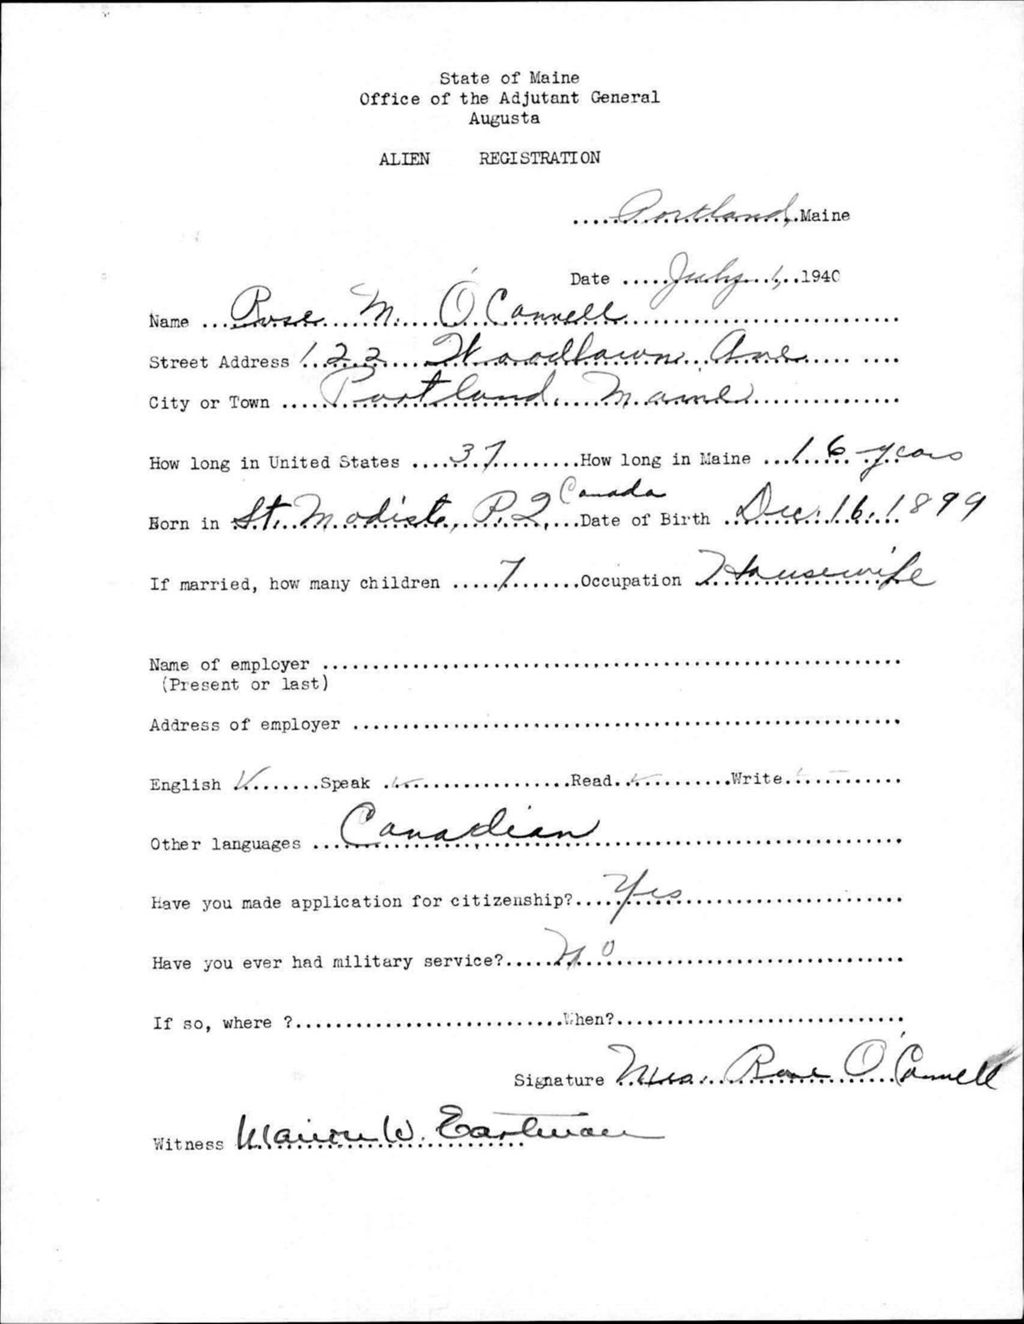 State of Maine
Office of the Adjutant General
Augusta
ALIEN REGISTRATION
.....Portland,.Maine
Date .....July 1,..1940
Name ...Rose M. O'Connell...
Street Address 122 Woodlawn Ave...
City or Town ....Portland, Maine...
How long in United States ....37.........How long in Maine ...16 years
Born in St. Modiste, P.Q. Canada...Date of Birth ..Dec. 16, 1899
If married, how many children .....7.......Occupation Housewife
Name of employer ...
(Present or last)
Address of employer ...
English ✓.......Speak ✓...Read..✓...Write.✓...
Other languages ...Canadian...
Have you made application for citizenship?....Yes...
Have you ever had military service?.....No...
If so, where ?...When?...
Signature Mrs. Rose O'Connell
Witness Marion W. Eastman